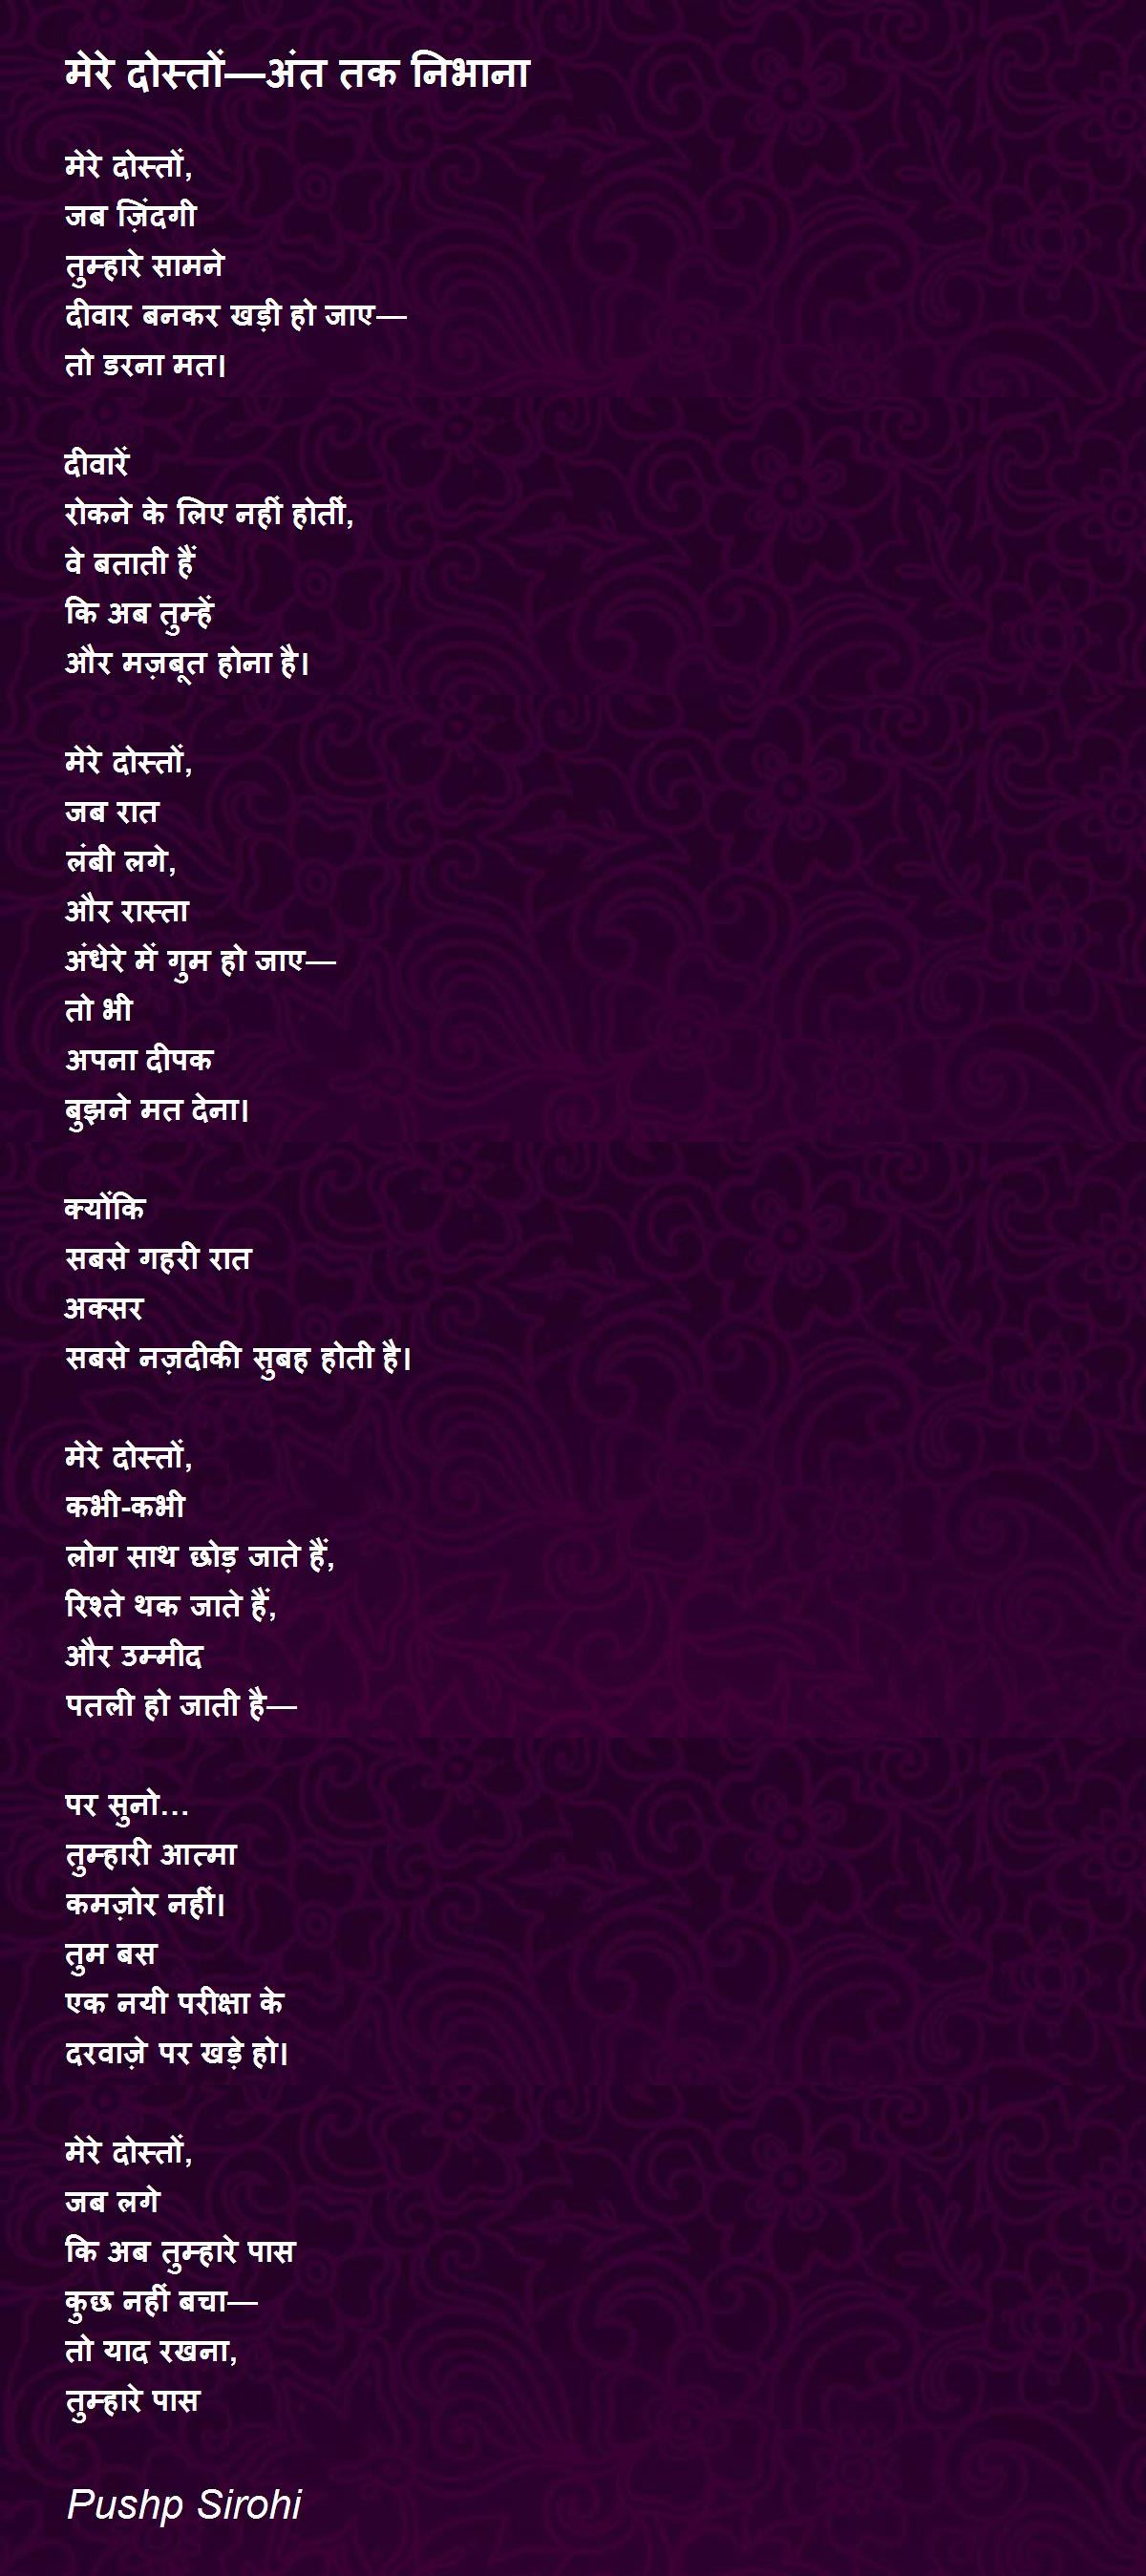 मेरे दोस्तों—अंत तक निभाना
मेरे दोस्तों,
जब ज़िंदगी
तुम्हारे सामने
दीवार बनकर खड़ी हो जाए—
तो डरना मत।
दीवारें
रोकने के लिए नहीं होतीं,
वे बताती हैं
कि अब तुम्हें
और मज़बूत होना है।
मेरे दोस्तों,
जब रात
लंबी लगे,
और रास्ता
अंधेरे में गुम हो जाए—
तो भी
अपना दीपक
बुझने मत देना।
क्योंकि
सबसे गहरी रात
अक्सर
सबसे नज़दीकी सुबह होती है।
मेरे दोस्तों,
कभी-कभी
लोग साथ छोड़ जाते हैं,
रिश्ते थक जाते हैं,
और उम्मीद
पतली हो जाती है—
पर सुनो...
तुम्हारी आत्मा
कमज़ोर नहीं।
तुम बस
एक नयी परीक्षा के
दरवाज़े पर खड़े हो।
मेरे दोस्तों,
जब लगे
कि अब तुम्हारे पास
कुछ नहीं बचा—
तो याद रखना,
तुम्हारे पास
Pushp Sirohi